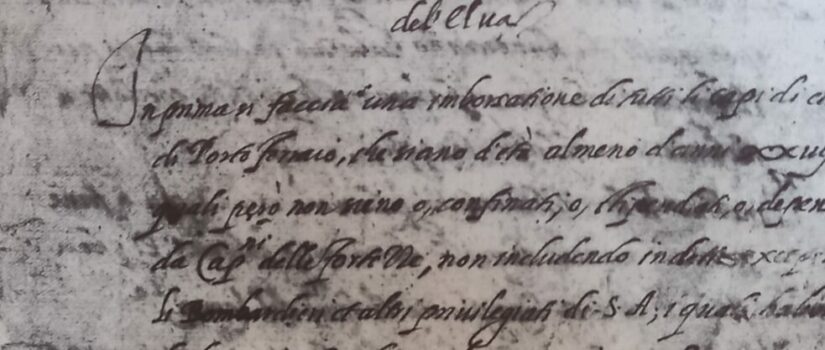 dell'Elva
In prima si faccia una imborsatione di tutti li capi di c
di Porto ferraio, che siano d'età almeno d'anni xxv
quali però non sieno o, confinati, o, stipendiati, o, depen
da Cap.ni delle fortezze, non includendo in dette
li Bombardieri et altri privilegiati di S. A; i quali habi